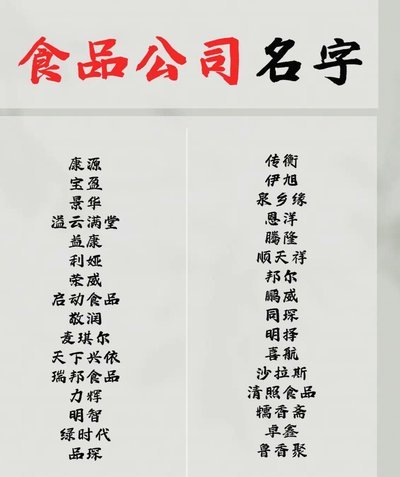 食品公司名字
康源
宝盈
景华
溢云满堂
益康
利娅
荣威
启动食品
敬润
麦琪尔
天下兴依
瑞邦食品
力辉
明智
绿时代
品琛
传衡
伊旭
泉乡缘
恩洋
腾隆
顺天祥
邦尔
鹏威
同琛
明择
喜航
沙拉斯
清照食品
糯香斋
卓鑫
鲁香聚